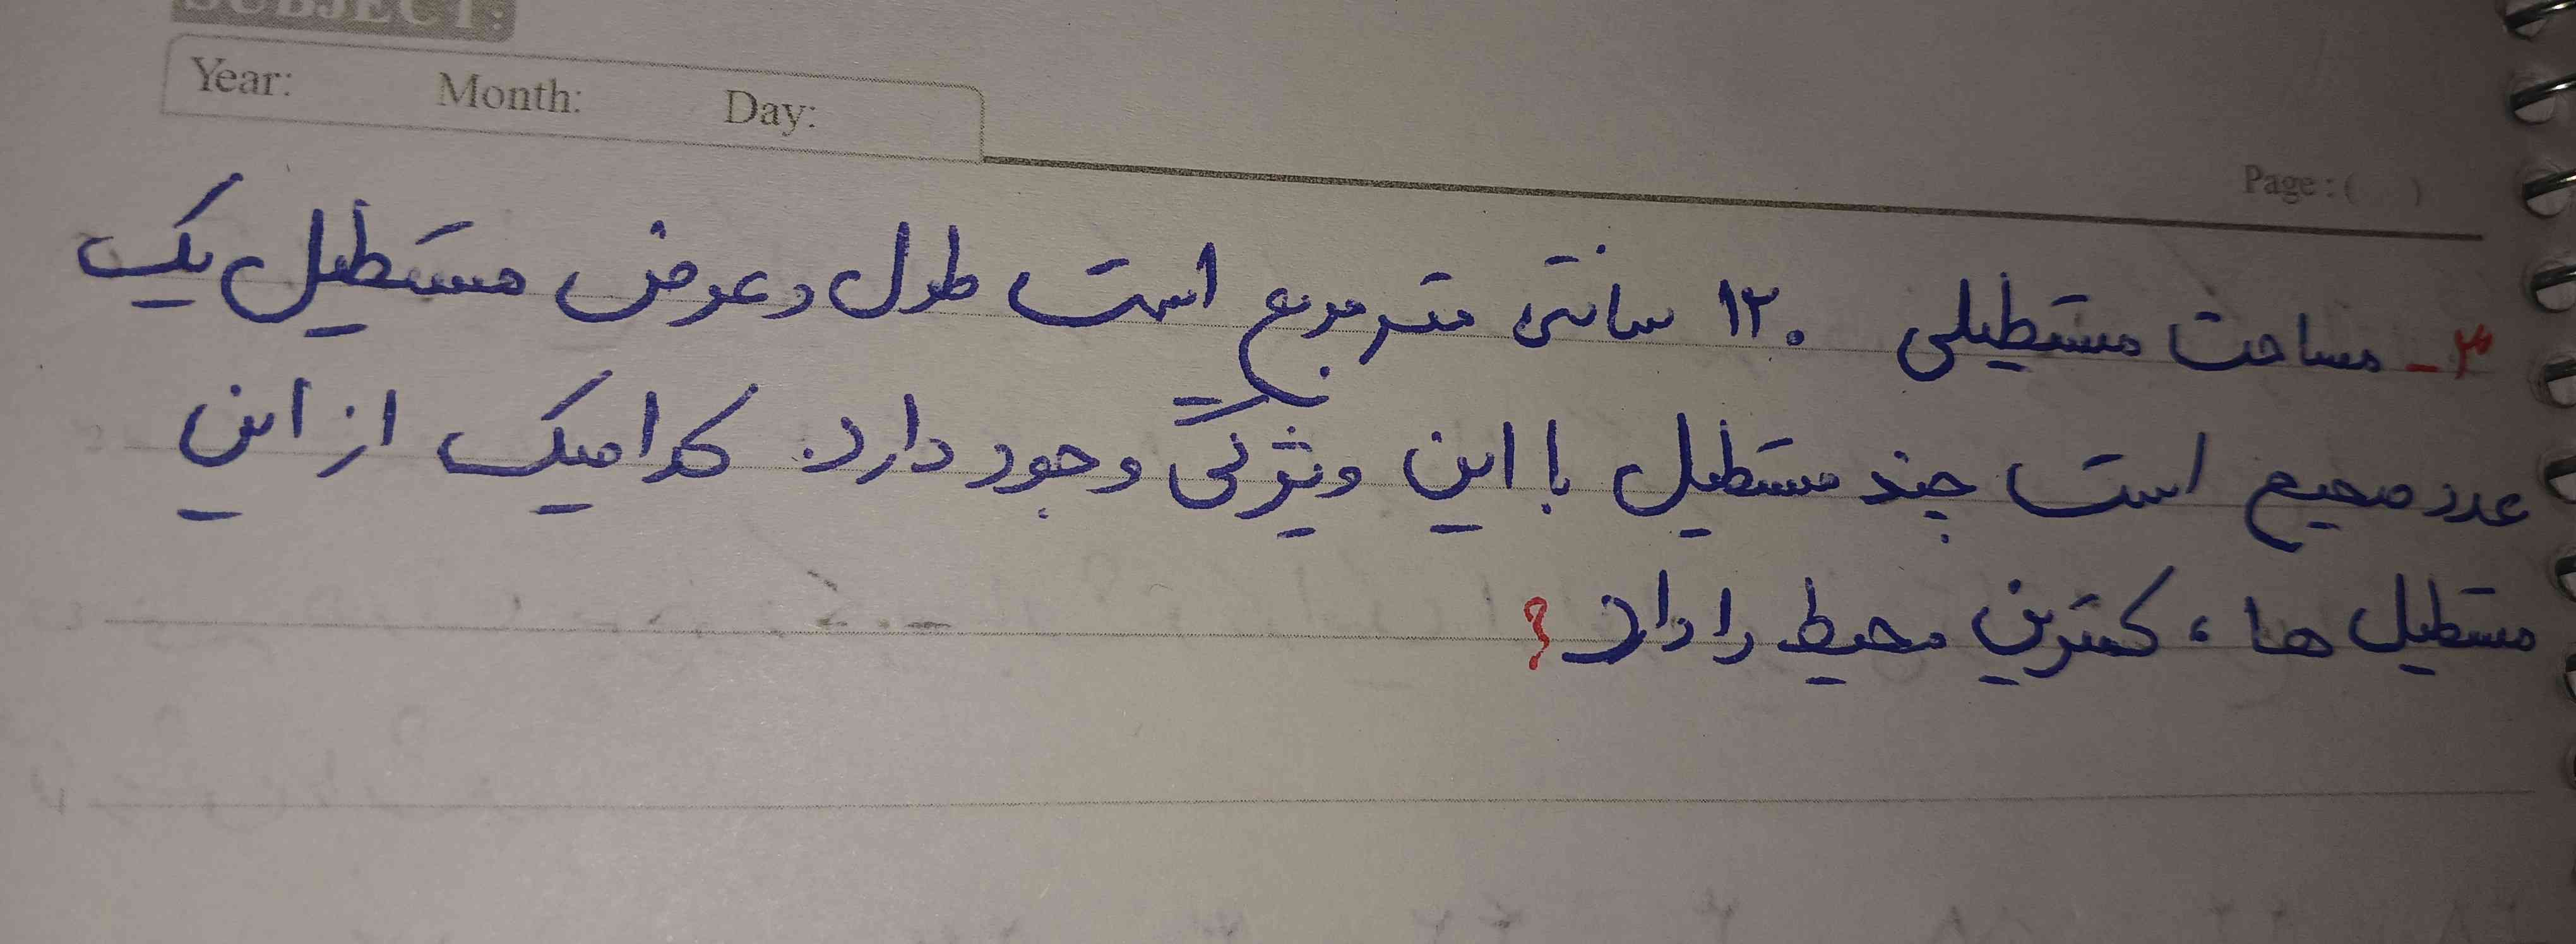 SUBJECT:
Year: Month: Day:
Page: ( )
۳- مساحت مستطیلی ۱۲۰ سانتی متر مربع است طول و عرض مستطیل یک
عدد صحیح است چند مستطیل با این ویژگی وجود دارد. کدامیک از این
مستطیل ها، کمترین محیط را دارد؟